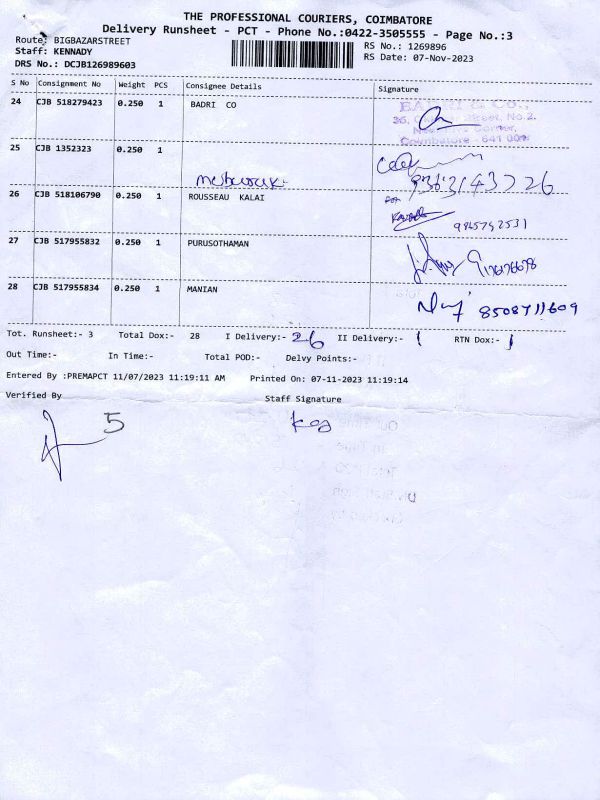 THE PROFESSIONAL COURIERS, COIMBATORE
Delivery Runsheet - PCT - Phone No.:0422-3505555 - Page No.:3
Route: BIGBAZARSTREET
RS No.: 1269896
Staff: KENNADY
RS Date: 07-Nov-2023
DRS No.: DCJB126989603
S No Consignment No Weight PCS Consignee Details Signature
24 CJB 518279423 0.250 1 BADRI CO
BADRI & CO.,
Coimbatore - 641 001
25 CJB 1352323 0.250 1
26 CJB 518106790 0.250 1 ROUSSEAU KALAI
9865792531
27 CJB 517955832 0.250 1 PURUSOTHAMAN
28 CJB 517955834 0.250 1 MANIAN
8508711609
Tot. Runsheet:- 3 Total Dox:- 28 I Delivery:- 26 II Delivery:- 1 RTN Dox:- 1
Out Time:- In Time:- Total POD:- Delvy Points:-
Entered By :PREMAPCT 11/07/2023 11:19:11 AM Printed On: 07-11-2023 11:19:14
Verified By
Staff Signature
5